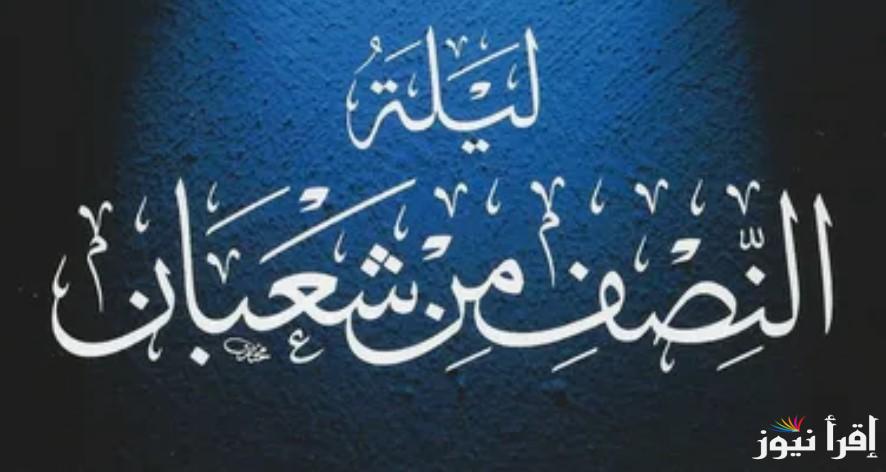 لَيْلَةُ
النِّصْفِ مِنْ شَعْبَان
إقرأ نيوز